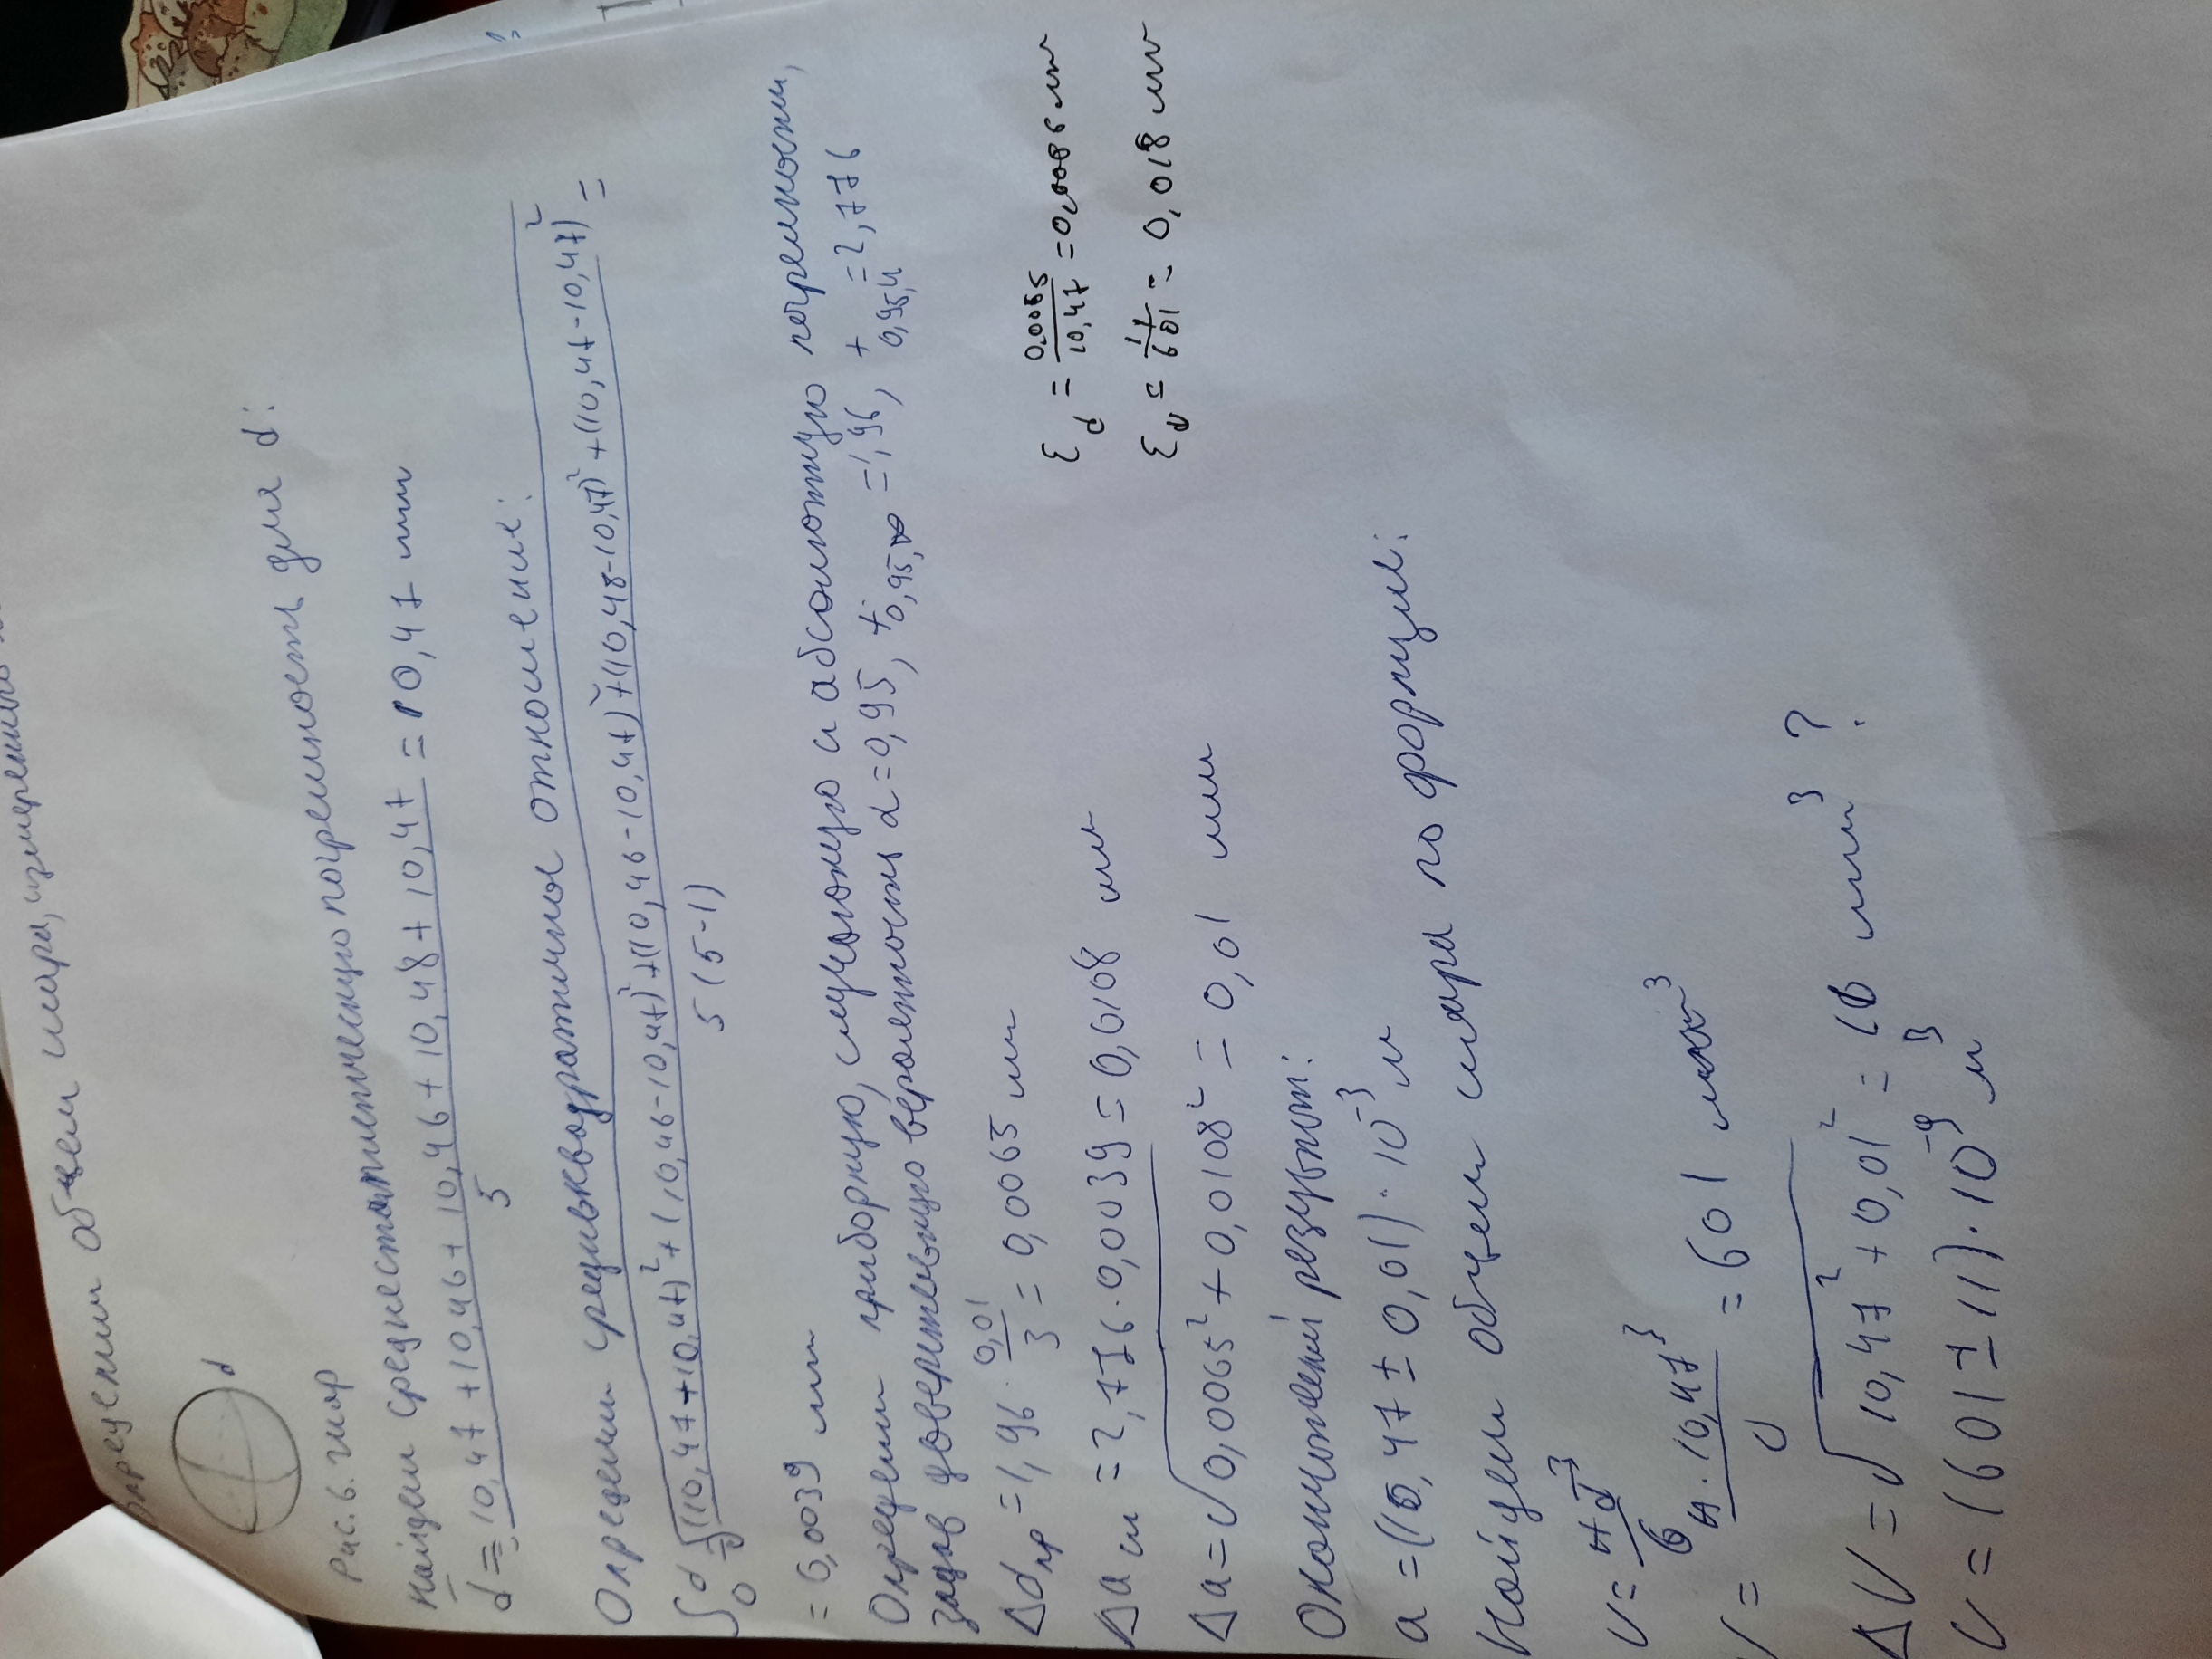 Определим объем шара, измеренного
d
Рис. 6. Шар
Найдем среднестатистическую погрешность для d:
d̅ = (10,47 + 10,46 + 10,46 + 10,48 + 10,47) / 5 = 10,47 мм
Определим среднеквадратичное отношение:
S₀ᵈ = √(((10,47-10,47)² + (10,46-10,47)² + (10,46-10,47)² + (10,48-10,47)² + (10,47-10,47)²) / 5(5-1)) =
= 0,0039 мм
Определим приборную, случайную и абсолютную погрешности,
задав доверительную вероятность α = 0,95, t 0,95,∞ = 1,96, t 0,95,4 = 2,776
Δd пр = 1,96 · 0,01/3 = 0,0065 мм
Δa сл = 2,776 · 0,0039 = 0,0108 мм
Δa = √(0,0065² + 0,0108²) = 0,01 мм
ε d = 0,0065/10,47 = 0,0006 мм
ε v = 11/601 = 0,018 мм
Окончательный результат:
a = (10,47 ± 0,01) · 10⁻³ м
Найдем объем шара по формуле:
V = πd̅³/6
V = π · 10,47³/6 = 601 мм³
ΔV = √(10,47² + 0,01²) = 10 мм³ ?
V = (601 ± 11) · 10⁻⁹ м³